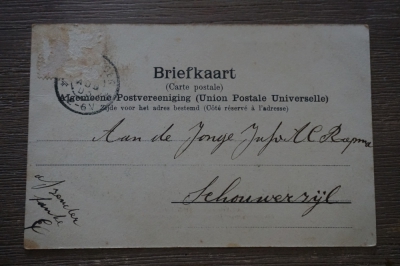 Briefkaart
(Carte postale)
Algemeene Postvereeniging (Union Postale Universelle)
Zijde voor het adres bestemd (Côté réservé à l'adresse)
Aan de Jonge Juf. M C Rapma
Schouwerzijl
afzender
tante